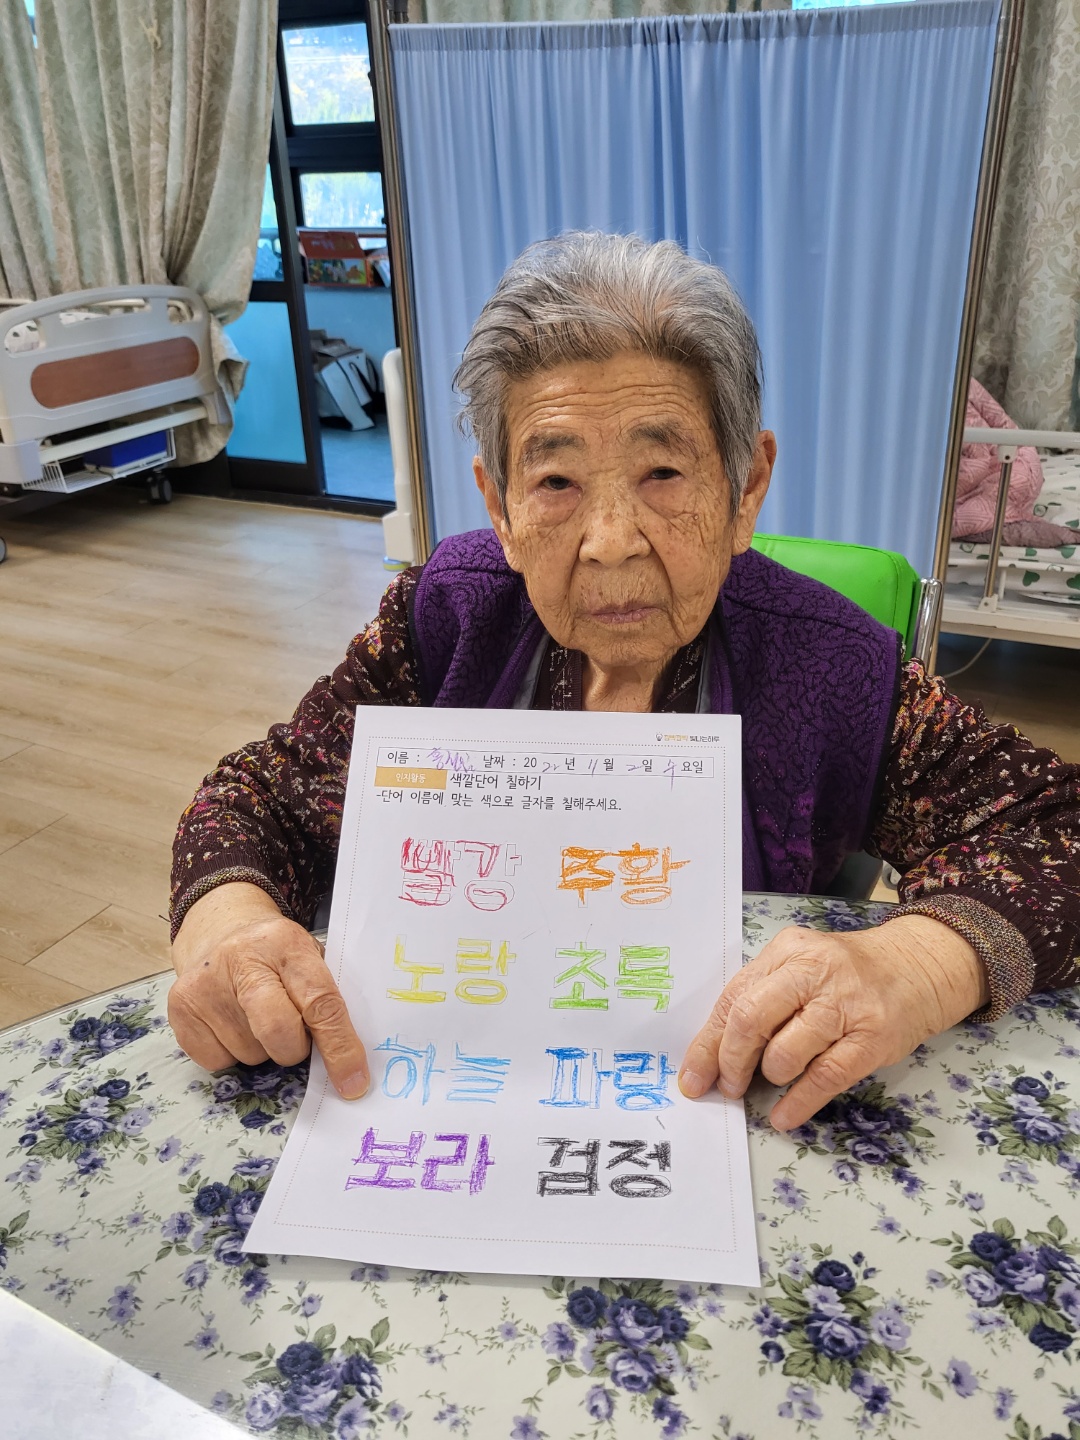 함께함께 빛나는하루
이름 : 날짜 : 2022년 11월 2일 수요일
인지활동 색깔단어 칠하기
-단어 이름에 맞는 색으로 글자를 칠해주세요.
빨강 주황
노랑 초록
하늘 파랑
보라 검정